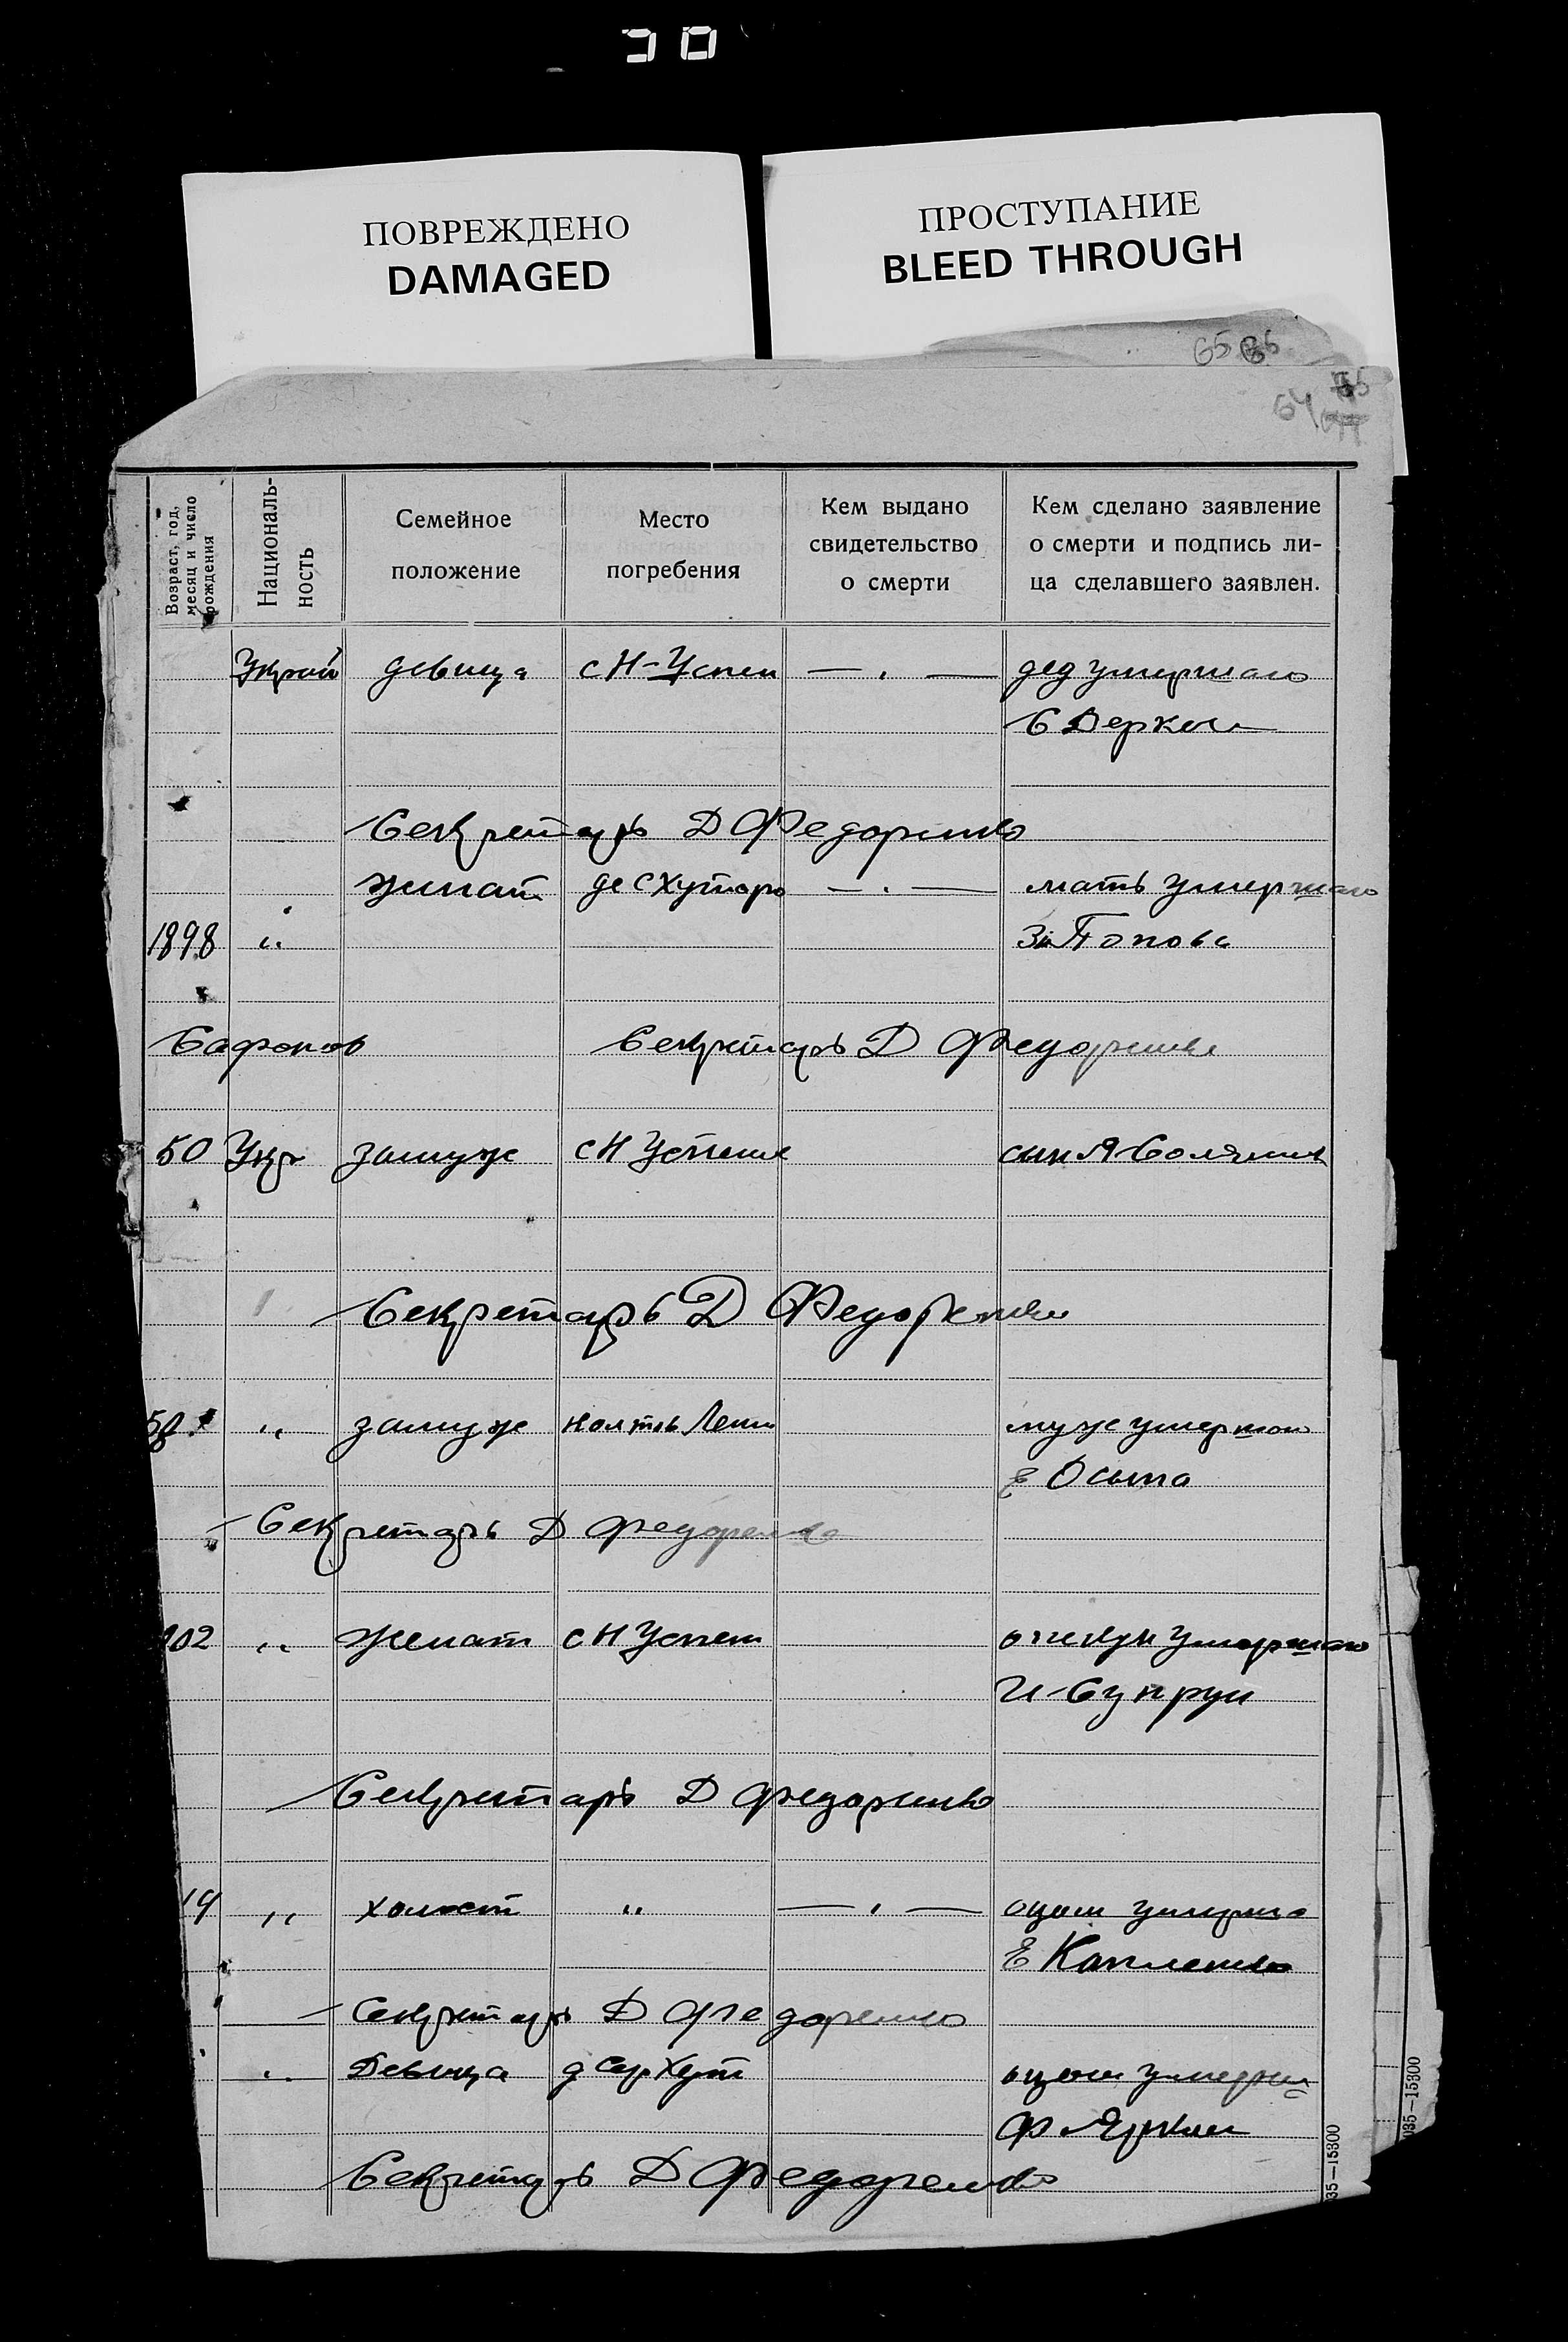 ПОВРЕЖДЕНО
DAMAGED
ПРОСТУПАНИЕ
BLEED THROUGH
65
64
Возраст, год, месяц и число рождения
Националь-
ность
Семейное
положение
Место
погребения
Кем выдано
свидетельство
о смерти
Кем сделано заявление
о смерти и подпись ли-
ца сделавшего заявлен.
Украй девица с Н-Успен — . — дед умершаго
С Деркач
Секретарь Д Федоренко
женат — . — мать умершаго
1898 " Попова
Сафонов Секретарь Д Федоренко
50 Укр замуж с Н Успен сын Я
Секретарь Д Федоренко
" замуж муж умершаго
Е Осыпа
Секретарь Д Федоренко
02 " женат с Н Успен опекун умершаго
И Супрун
Секретарь Д Федоренко
19 " холост " — . — отец
Е
Секретарь Д Федоренко
" Девица отец
Ф
Секретарь Д Федоренко
35—15300
035—15300